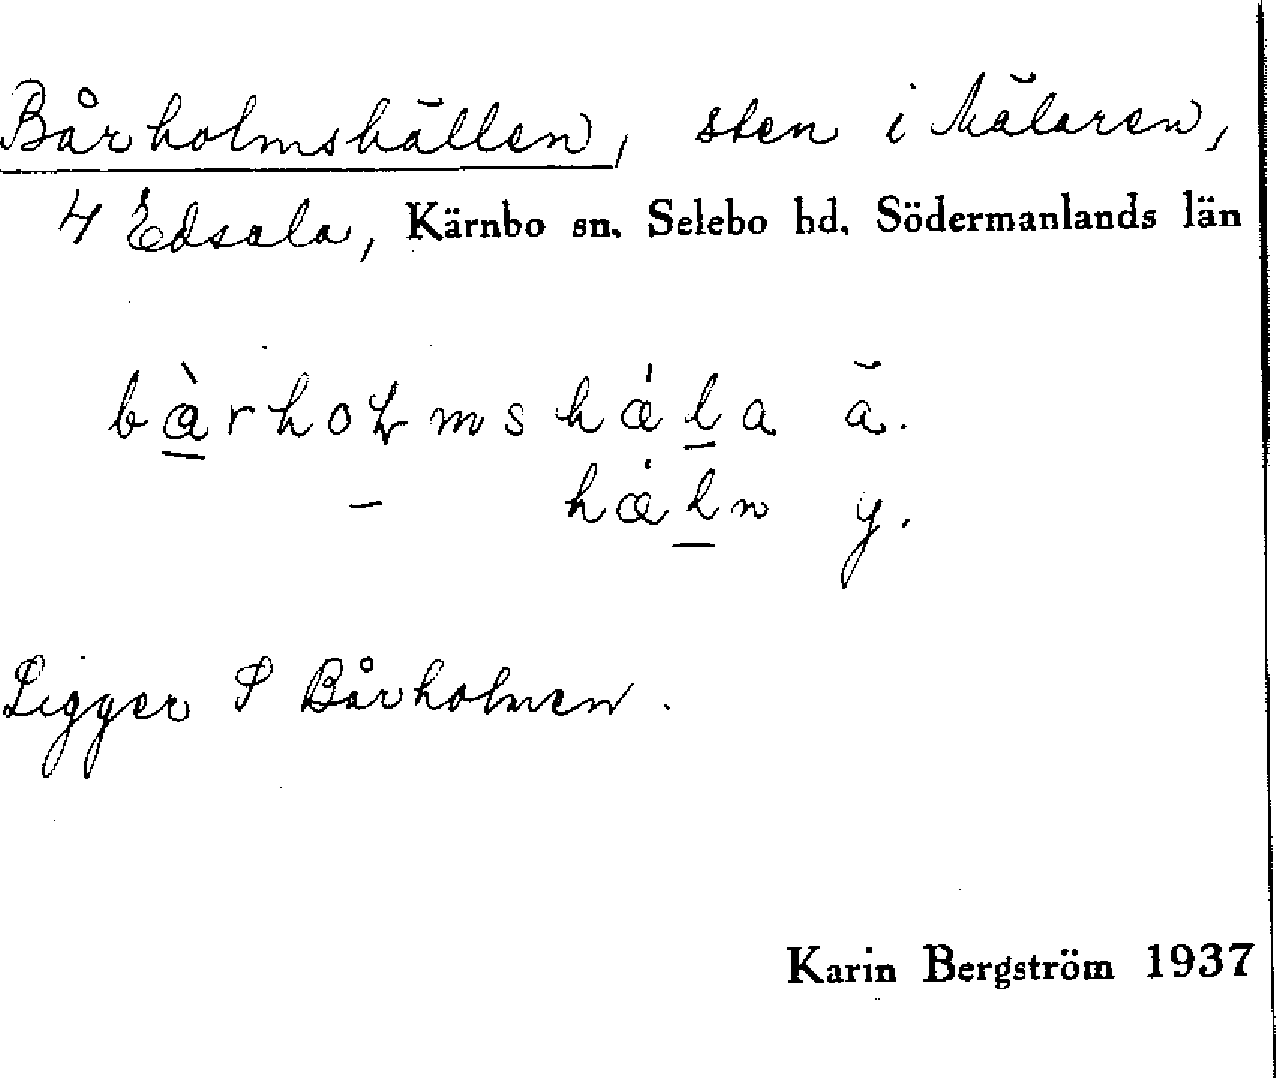 Bårholmshällen, sten i Mälaren,
4 Edsala, Kärnbo sn. Selebo hd. Södermanlands län
bàrhoɫmshǽla ä.
- hǽln y.
Ligger S Bårholmen.
Karin Bergström 1937